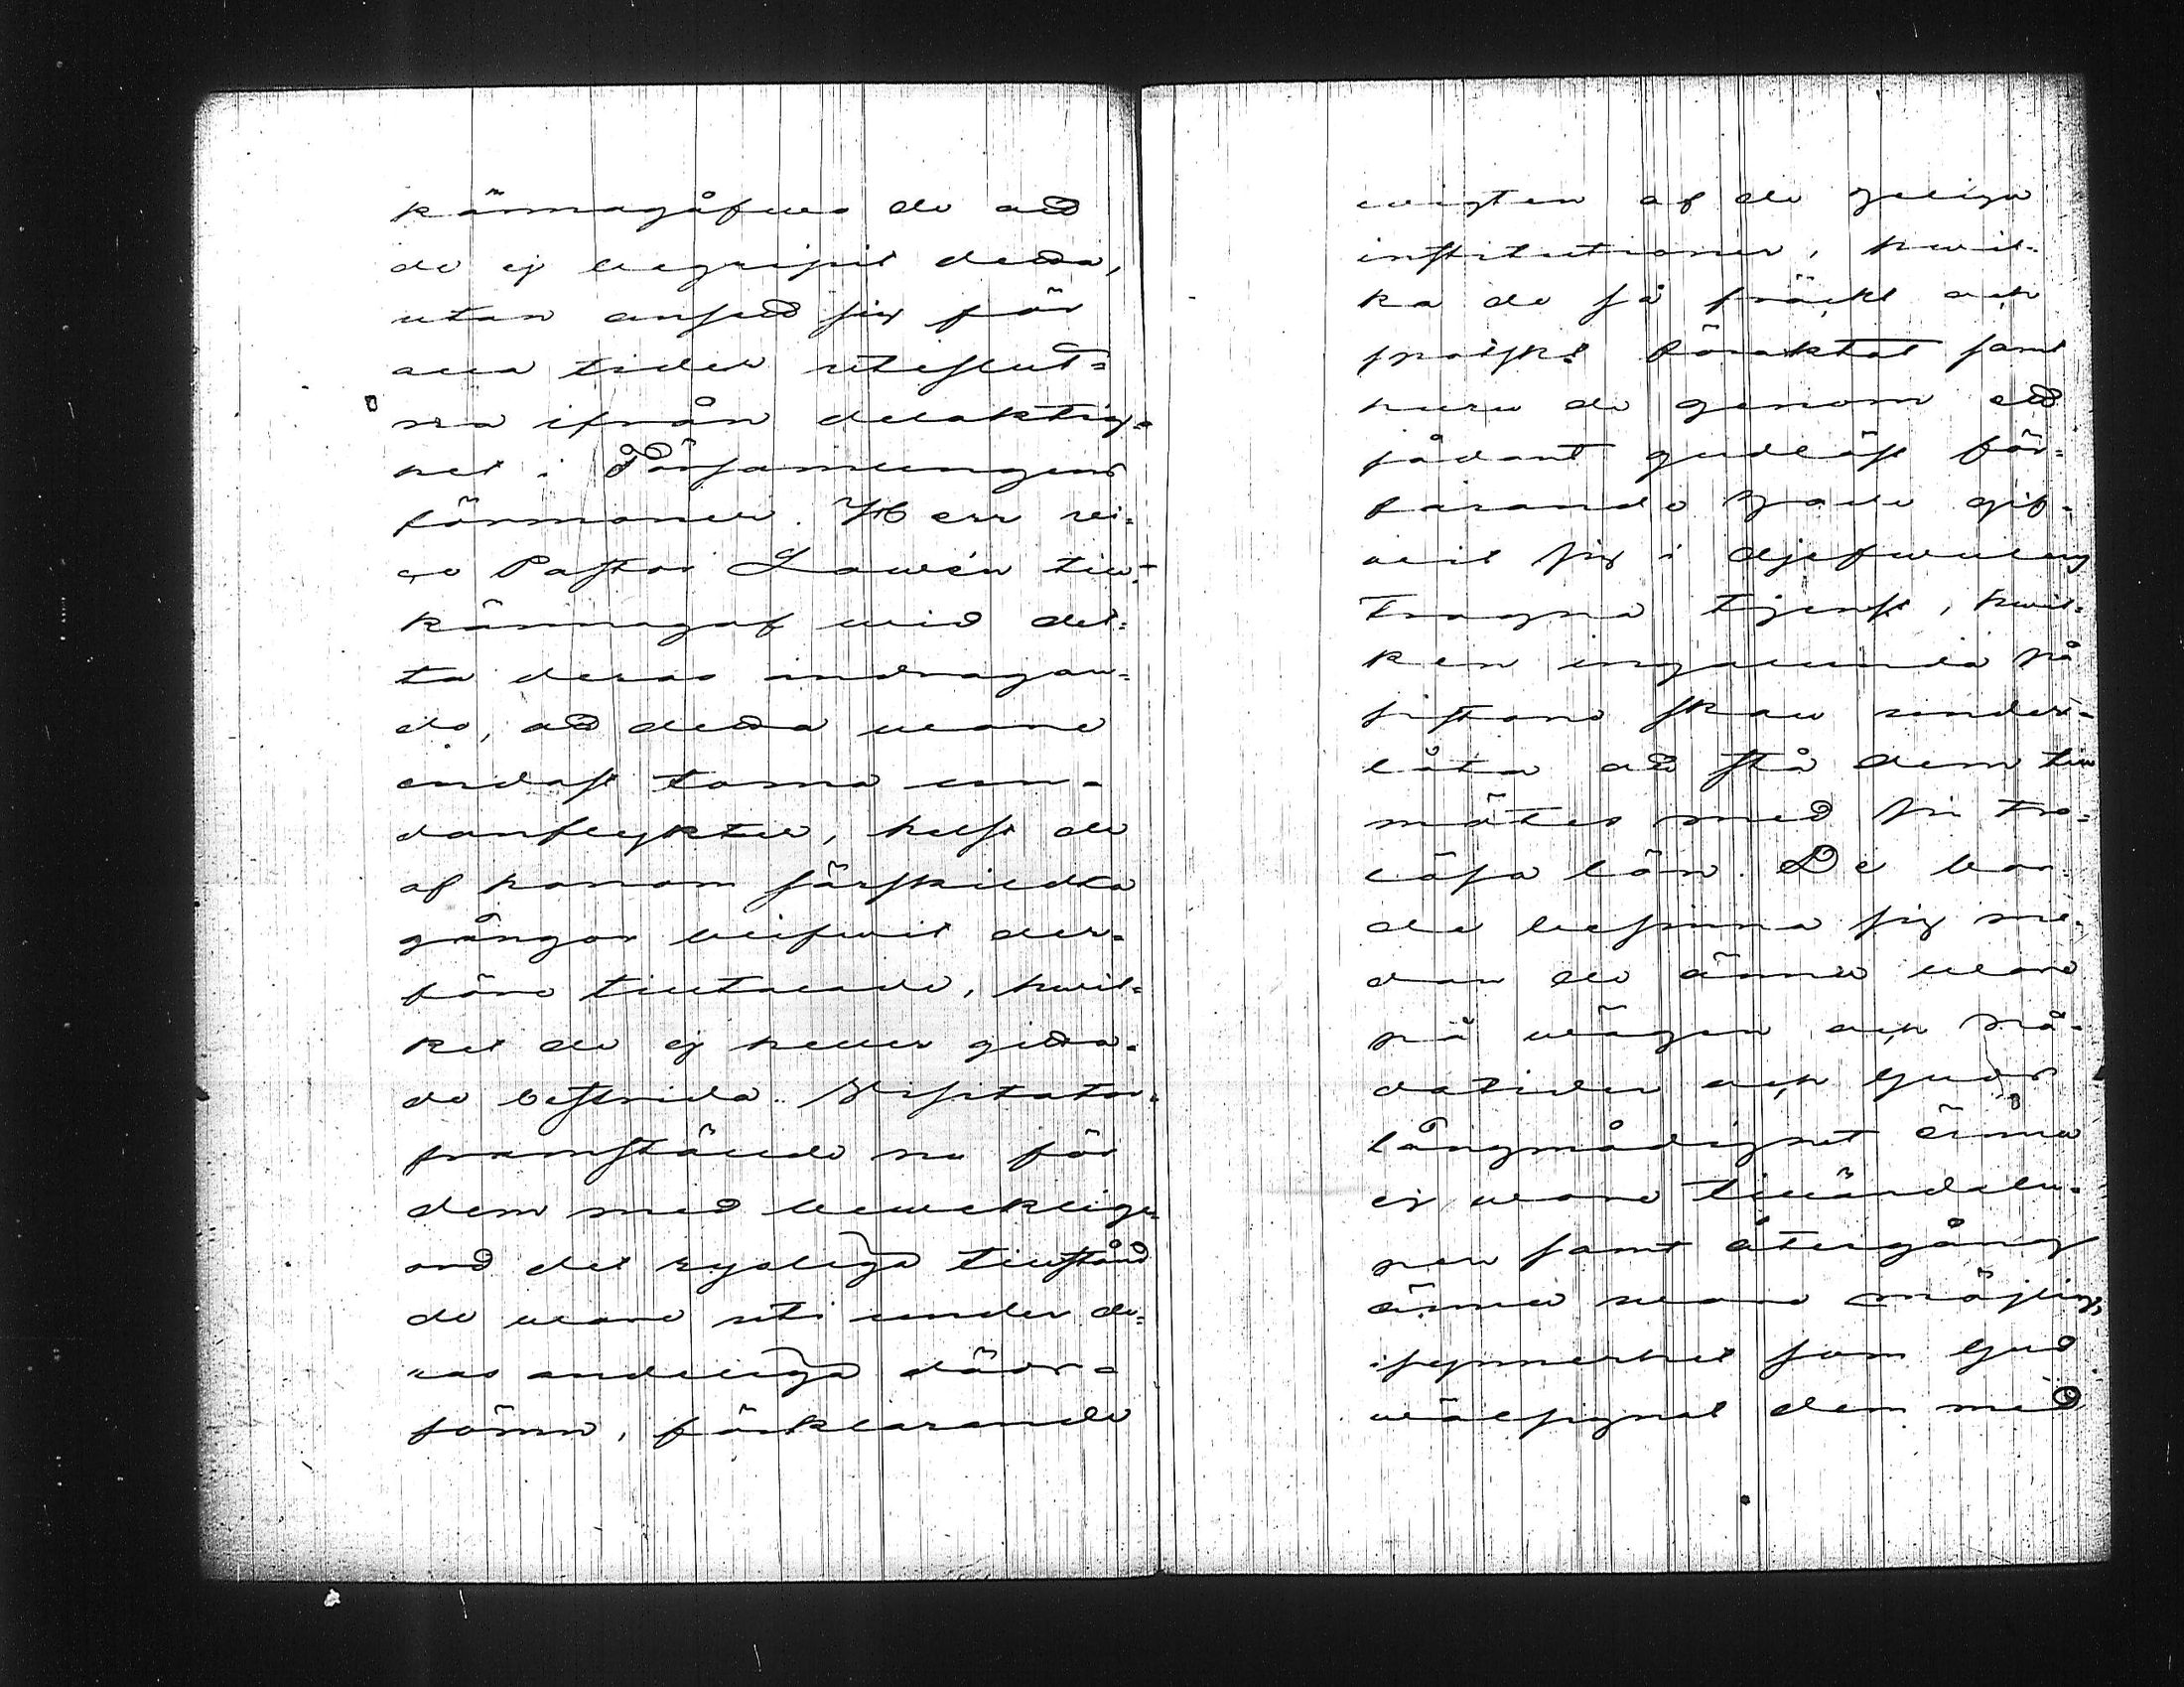 kännagåfwo de att
de ej begripit detta,
utan ansedt sig för
alla tider uteslut=
na ifrån delaktig=
het i Församlingens
förmoner. Herr vi=
ce Pastor Lawén till=
kännagaf wid det=
ta deras andragan=
de, att detta wore
endast toma un=
danflykter, helst de
af honom särskildta
gångor blifwit der=
före tilltalade, hwil=
ket de ej heller gitta=
de bestrida. Visitator
framstälde nu för
dem med bewekliga
ord det rysliga tillstånd
de wore uti under de=
ras andeliga döds=
sömn, förklarande
wigten af de heliga
institutioner, hwil=
ka de så fräckt och
trotsigt föraktat samt
huru de genom ett
sådant gudlöst för=
farande hade gif=
wit sig i djefwulens
trogna tjenst, hwil=
ken ingalunda på
sistone skall under=
låta att stå dem till
mötes med sin tro=
lösa lön. De bor=
de besinna sig me=
dan de ännu wore
på wägen och nå=
datiden och Guds
långmodighet ännu
ej wore tilländalu=
pen samt återgång
ännu wore möjlig,
isynnerhet som Gud
wälsignat dem med